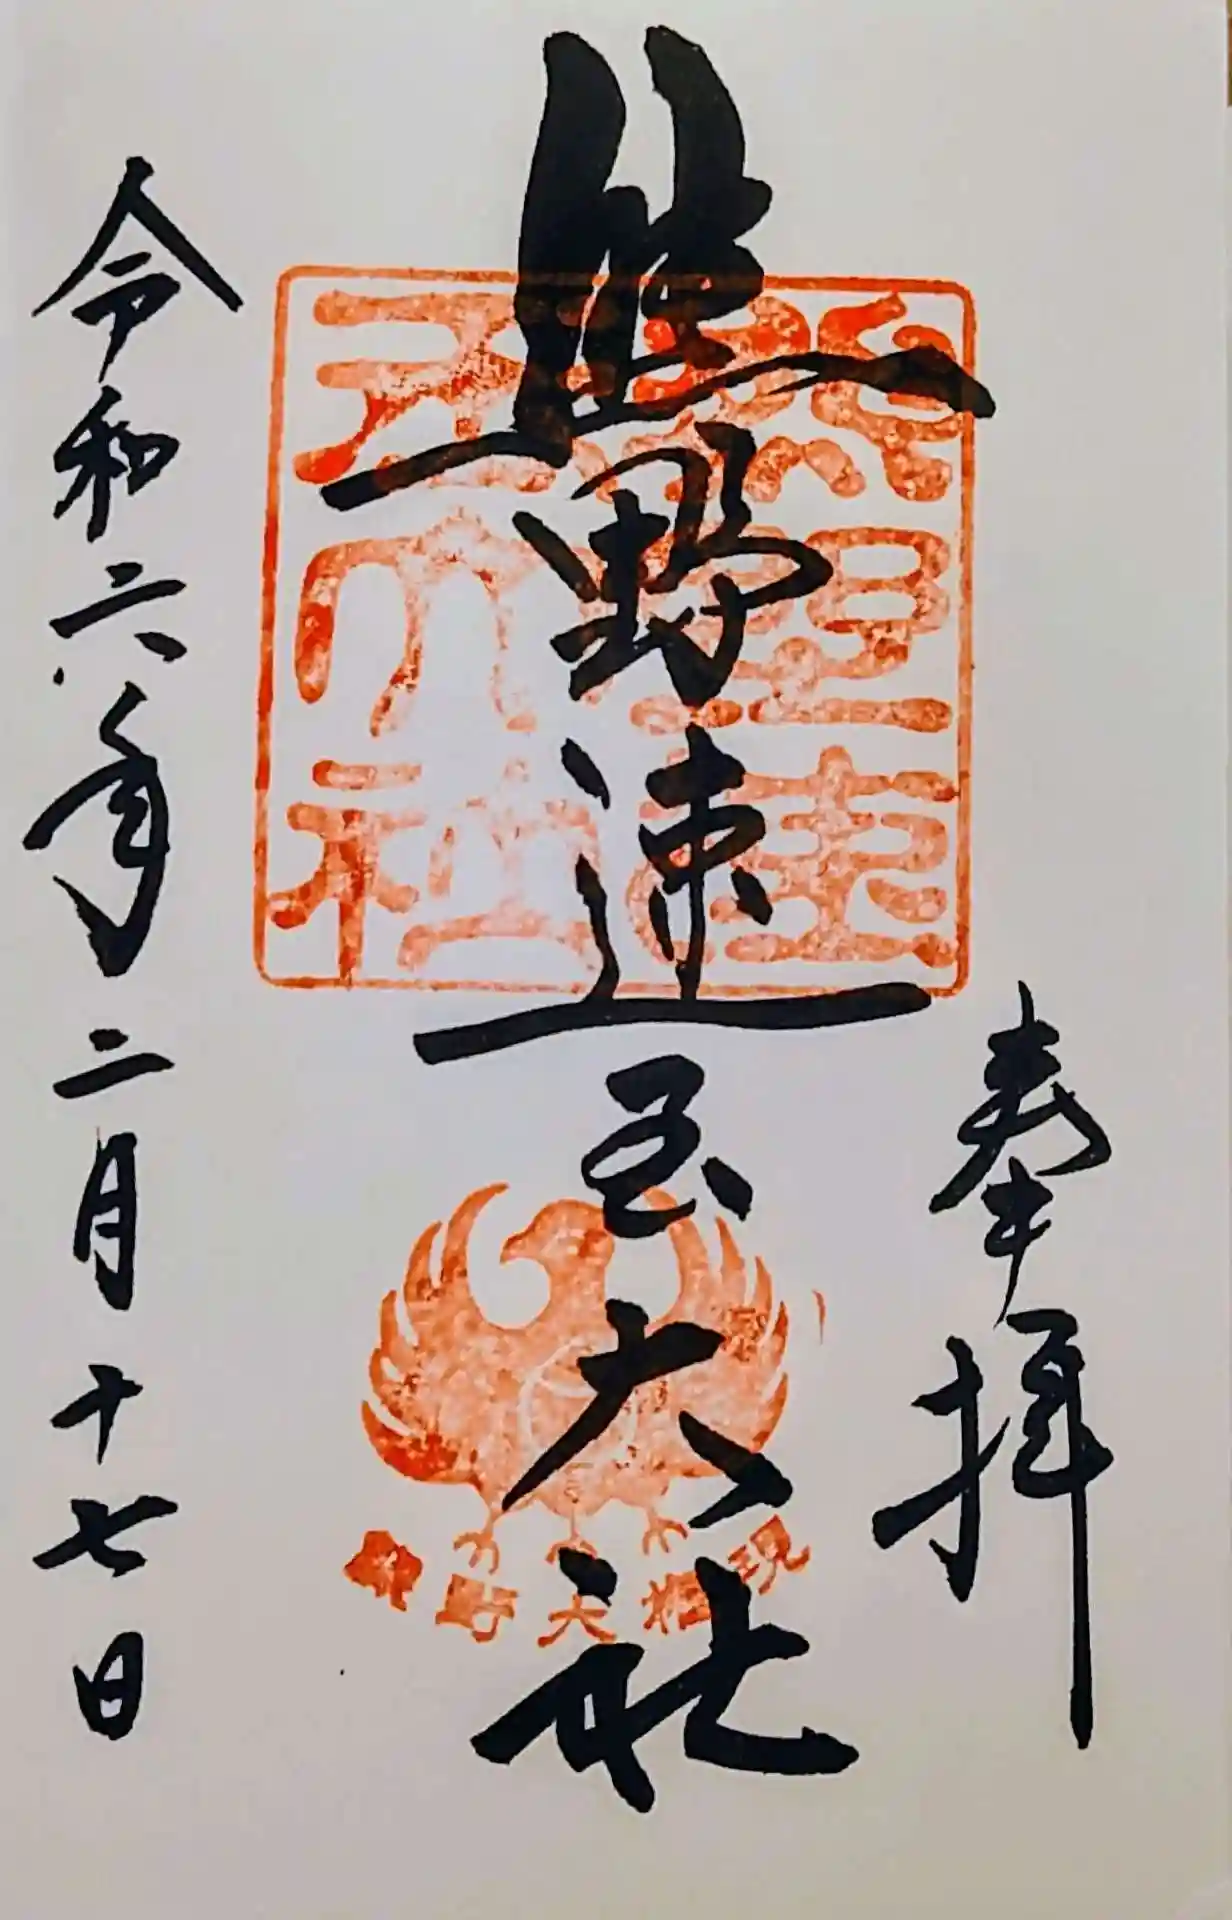 奉拝
熊野速玉大社
熊野速玉大社
熊野大権現
令和六年二月十七日